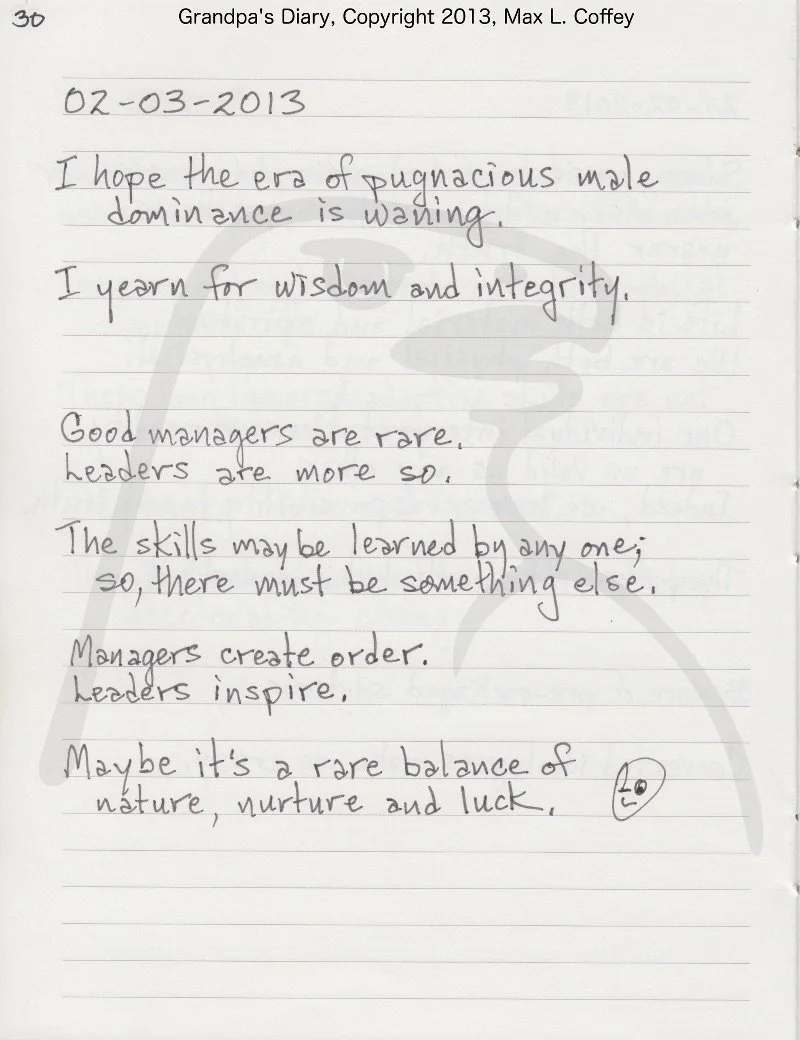 30
Grandpa's Diary, Copyright 2013, Max L. Coffey
02-03-2013
I hope the era of pugnacious male
dominance is waning.
I yearn for wisdom and integrity.
Good managers are rare.
Leaders are more so.
The skills may be learned by any one;
so, there must be something else.
Managers create order.
Leaders inspire.
Maybe it's a rare balance of
nature, nurture and luck.